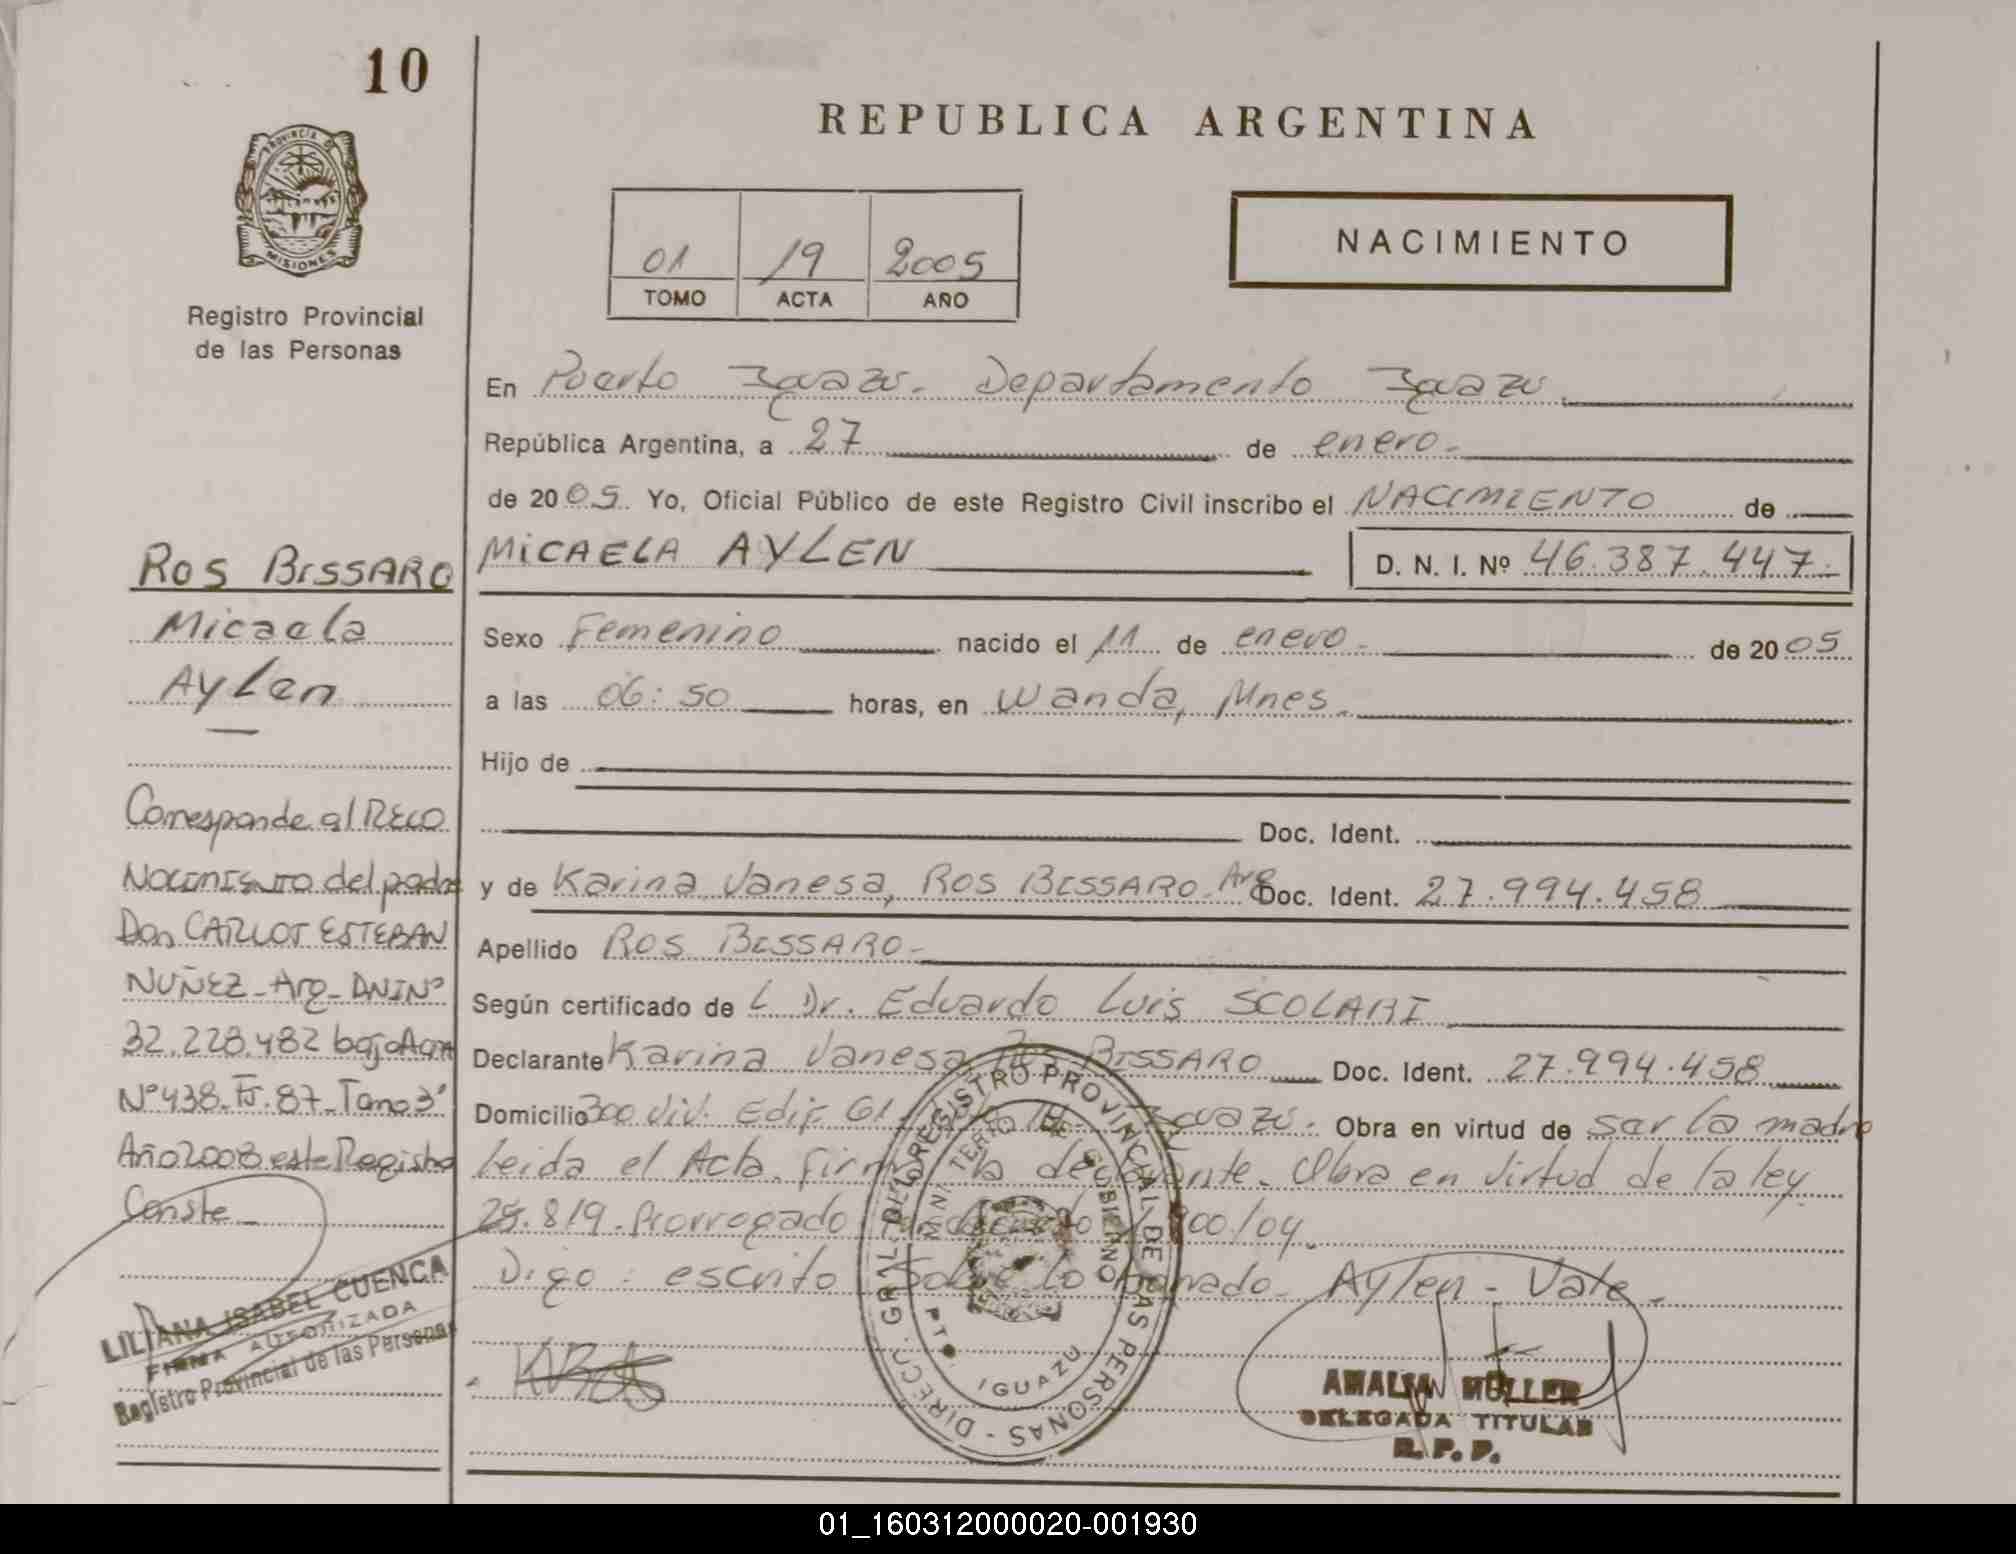 10
REPUBLICA ARGENTINA
PROVINCIA DE
MISIONES
Registro Provincial
de las Personas
01 19 2005
TOMO ACTA AÑO
NACIMIENTO
En Puerto Iguazú. Departamento Iguazú
República Argentina, a 27 de enero.
de 2005. Yo, Oficial Público de este Registro Civil inscribo el NACIMIENTO de
MICAELA AYLEN D. N. I. Nº 46.387.447.
Sexo Femenino nacido el 11 de enero. de 2005
a las 06:50 horas, en Wanda, Mnes.
Hijo de
Doc. Ident.
y de Karina Vanesa, ROS BISSARO. Arg Doc. Ident. 27.994.458
Apellido ROS BISSARO.
Según certificado de L Dr. Eduardo Luis SCOLARI
Declarante Karina Vanesa Ros BISSARO Doc. Ident. 27.994.458
Domicilio 300 viv. Edif. G1 Iguazú. Obra en virtud de ser la madre
leida el Acta. Firma la declarante. Obra en virtud de la ley
25.819. Prorrogado 1900/04.
Digo: escrito sobre lo borrado. Aylen - Vale.
ROS BISSARO
Micaela
Aylen
Corresponde al RECO
NOCIMIENTO del padre
Don CARLOS ESTEBAN
NUÑEZ - Arg - DNI Nº
32.228.482 bajo Acta
Nº 438. Fº. 87 - Tomo 3º
Año 2008 este Registro
Conste
LILIANA ISABEL CUENCA
FIRMA AUTORIZADA
Registro Provincial de las Personas
DIRECC. GRAL. DEL REGISTRO PROVINCIAL DE LAS PERSONAS -
MINISTERIO DE GOBIERNO
PTO. IGUAZU
AMALIA MULLER
DELEGADA TITULAR
R. P. P.
01_160312000020-001930